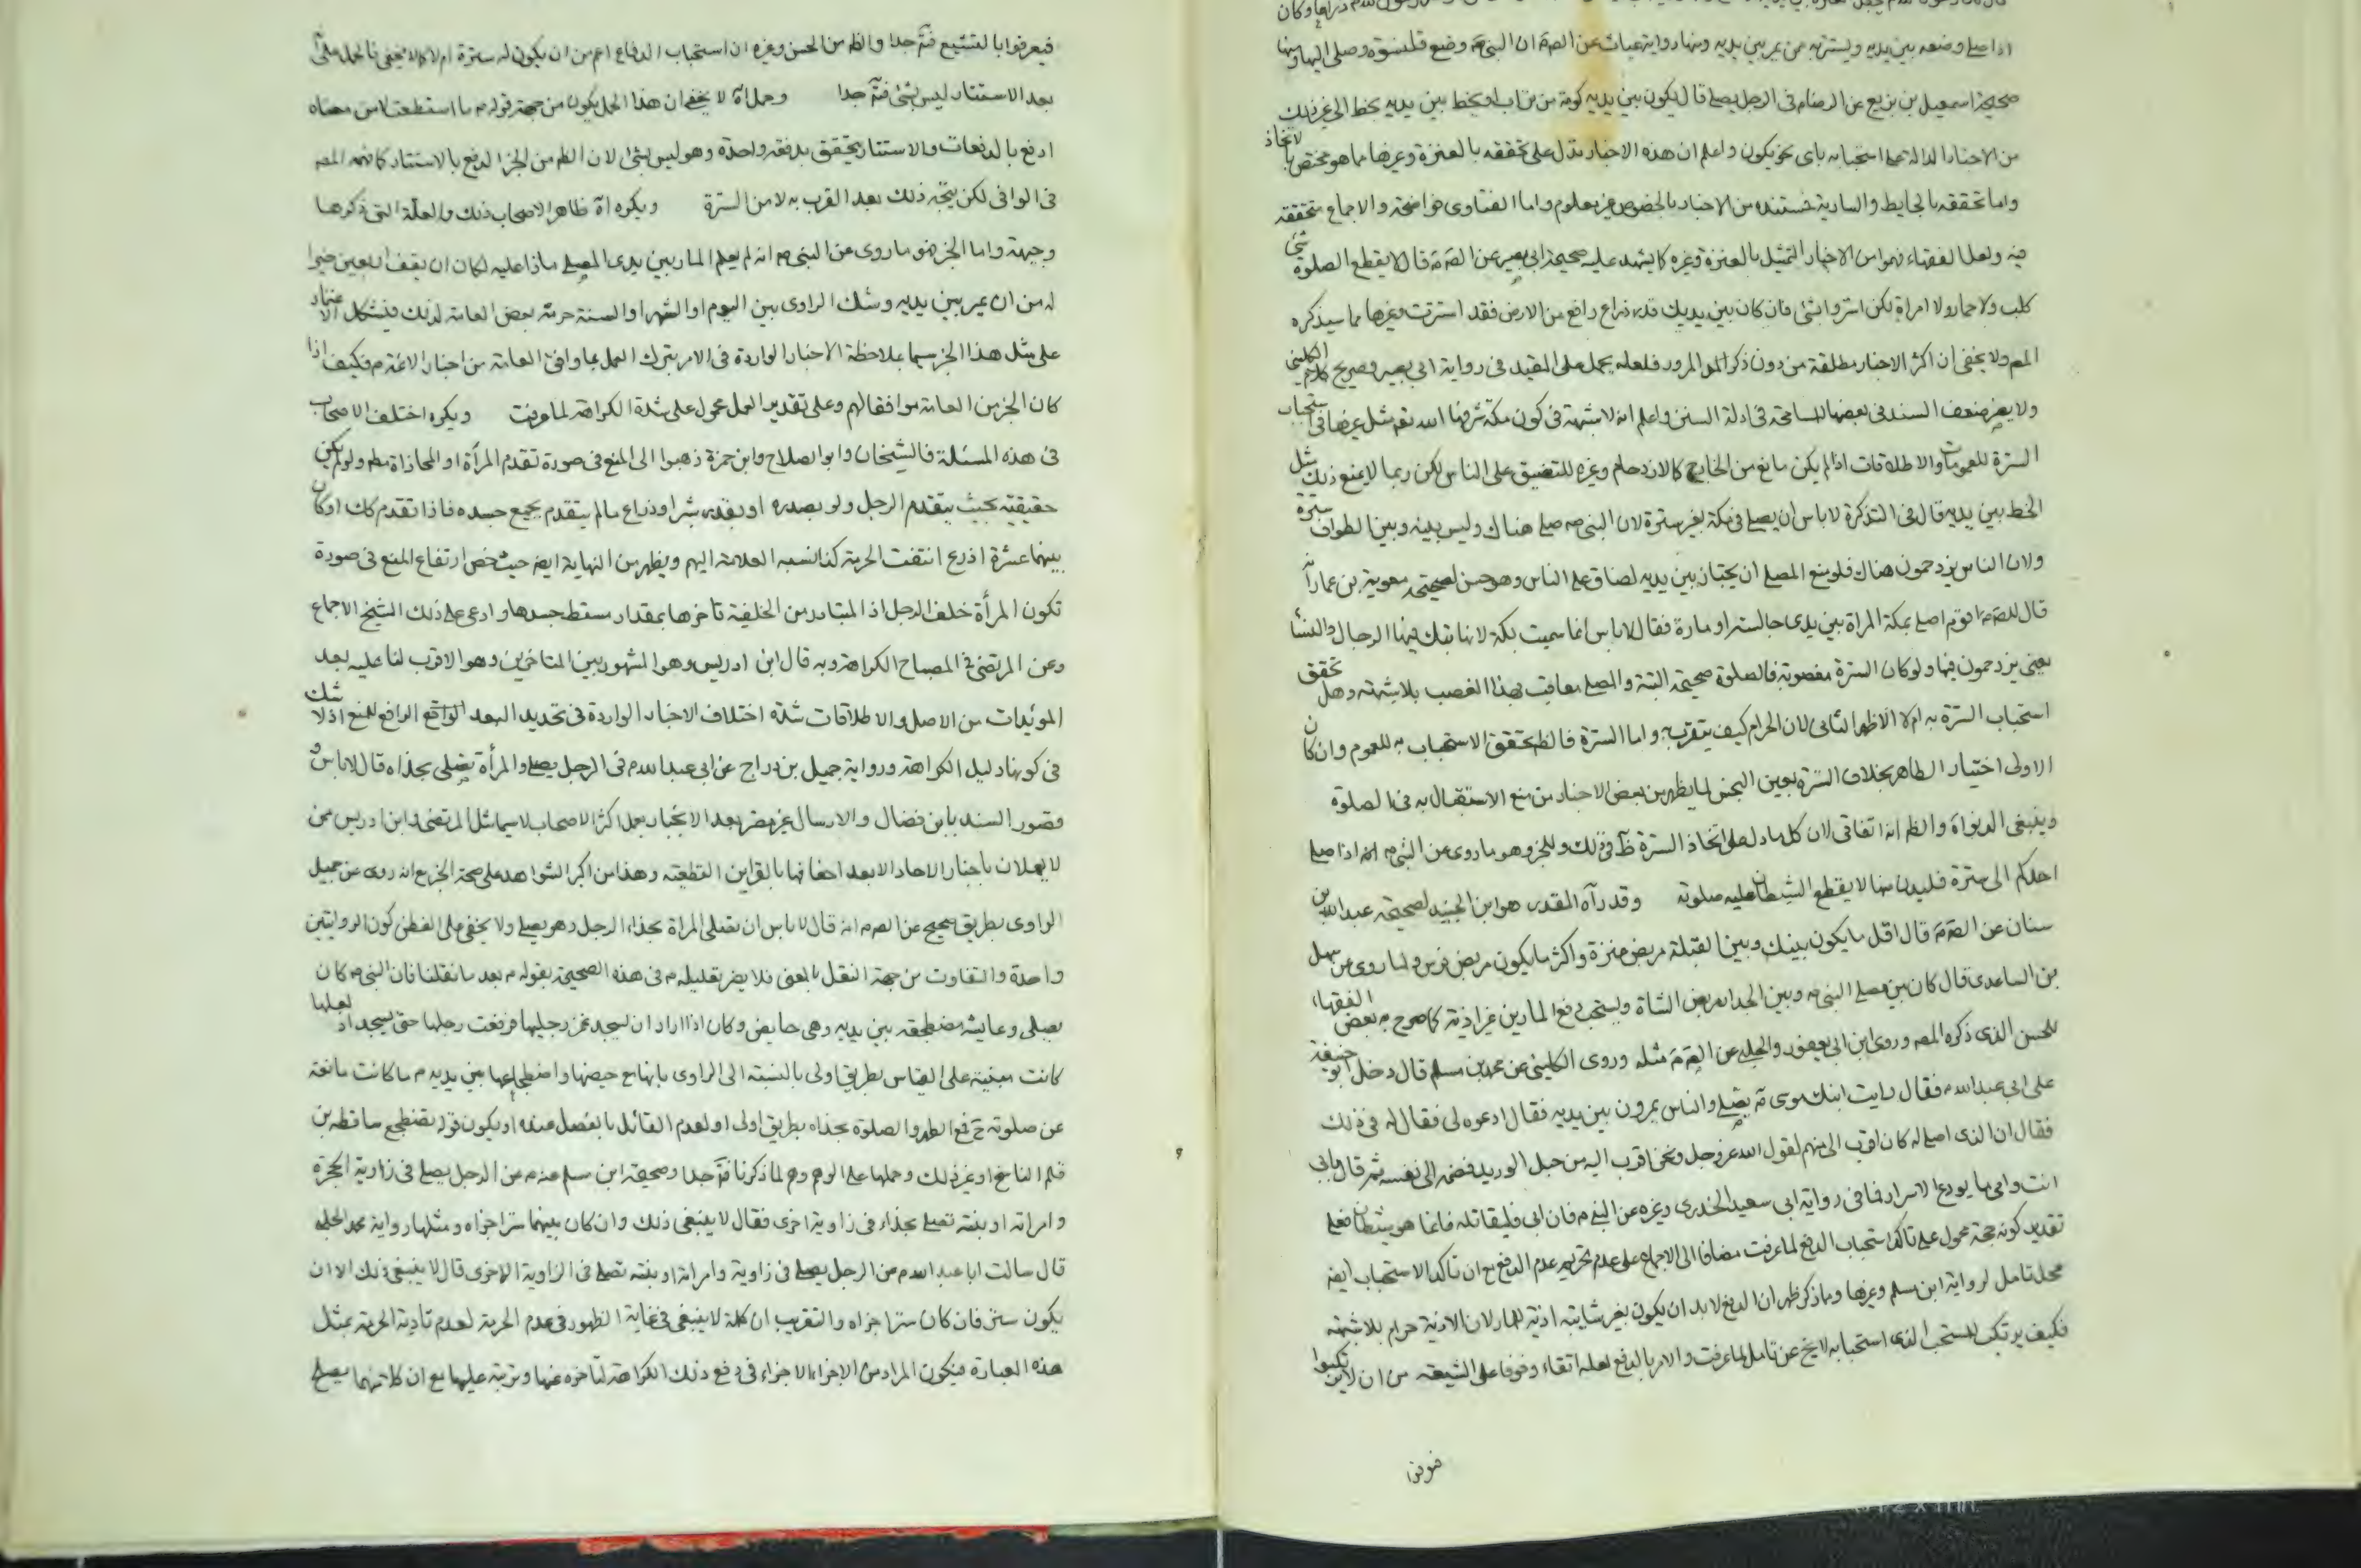 اذا صلى وضعه بين يديه ويستتر به ممن يمر بين يديه ومنها رواية غياث عن الصادق ان النبي ص وضع قلنسوة وصلى اليها ومنها
صحيحة اسمعيل بن بزيع عن الرضا م في الرجل يصلي قال يكون بين يديه كومة من تراب او يخط بين يديه بخط الى غير ذلك
من الاخبار الدالة على استحبابه باي نحو يكون واعلم ان هذه الاخبار تدل على تحققه بالعنزة وغيرها مما هو مختص باتخاذ
واما تحققه بالحايط والسارية فمستنده من الاخبار بالخصوص غير معلوم واما الفتاوى فواضحة والاجماع متحققة
فيه ولعل الفقهاء فهموا من الاخبار التمثيل بالعنزة وغيره كما يشهد عليه صحيحة ابي بصير عن الصادق م قال لا يقطع الصلوة شئ
كلب ولا حمار ولا امراة لكن استتروا بشئ فان كان بين يديك قدر ذراع رافع من الارض فقد استترت وغيرها مما سيذكره
المص ولا يخفى ان اكثر الاخبار مطلقة من دون ذكر المرور فلعله يحمل على المقيد في رواية ابي بصير وصريح كلام الكليني
ولا يضر ضعف السند في بعضها للمسامحة في ادلة السنن واعلم انه لا شبهة في كون مكة شرفها الله تعم مثل غيرها في استحباب
السترة للعمومات والاطلاقات اذا لم يكن مانع من الخارج كالازدحام وغيره للتضيق على الناس لكن ربما لا يمنع ذلك مثل
الخط بين يديه قال في التذكرة لا باس ان يصلي في مكة بغير سترة لان النبي ص صلى هناك وليس بينه وبين الطواف سترة
ولان الناس يزدحمون هناك فلو منع المصلي ان يجتاز بين يديه لضاق على الناس وهو حسن لصحيحة معوية بن عمار انه
قال للص م اقوم اصلي بمكة المراة بين يدي جالسة او مارة فقال لا باس انما سميت بكة لانها تبك فيها الرجال والنساء
يعني يزدحمون فيها ولو كان السترة مغصوبة فالصلوة صحيحة البتة والمصلي معاقب بهذا الغصب بلا شبهة وهل تحقق
استحباب السترة به ام لا الاظهر الثاني لان الحرام كيف يتقرب به واما السترة فالظ تحقق الاستحباب به للعموم وان كان
الاولى اختيار الطاهر بخلاف السترة بعين النجس لما يظهر من بعض الاخبار من منع الاستقبال به في الصلوة
وينبغي الدنو اه والظ انه اتفاقي لان كل ما دل على اتخاذ السترة ظ في ذلك وللخبر وهو ما روى عن النبي ص انه اذا صلى
احدكم الى سترة فليدن منها لا يقطع الشيطان عليه صلوته وقدره اه المقدر هو ابن الجنيد لصحيحة عبد الله بن
سنان عن الصادق م قال اقل ما يكون بينك وبين القبلة مربض عنزة واكثر ما يكون مربض فرس ولما روى عن سهل
بن الساعدي قال كان بين مصلى النبي ص وبين الجدار ممر الشاة ويستحب دفع المارين غير اذية كما صرح به بعض الفقهاء
للحسن الذي ذكره المص وروى ابن ابي يعفور والحلبي عن الصادق م مثله وروى الكليني عن محمد بن مسلم قال دخل ابو حنيفة
على ابي عبد الله م فقال رايت ابنك موسى م يصلي والناس يمرون بين يديه فقال ادعوه لي فقال له في ذلك
فقال ان الذي اصلي له كان اقرب الي منهم لقول الله عز وجل ونحن اقرب اليه من حبل الوريد فضمه الى نفسه ثم قال بابي
انت وامي يا مودع الاسرار فما في رواية ابي سعيد الخدري وغيره عن النبي م فان ابى فليقاتله فانما هو شيطان فعلى
تقدير كونه حجة محمول على تاكد استحباب الدفع لما عرفت مضافا الى الاجماع على عدم تحريم عدم الدفع مع ان تاكد الاستحباب ايضه
محل تامل لرواية ابن مسلم وغيرها وما ذكر ظهر ان الدفع لا بد ان يكون بغير شايبة اذية للمار لان الاذية حرام بلا شبهة
فكيف يرتكب للمستحب الذي استحبابه لا يخ عن تامل لما عرفت والامر بالدفع لعله اتقاء وخوفا على الشيعة من ان لا يرتكبوا
فيعرفوا بالتشيع فته جدا والظ من الحسن وغيره ان استحباب الدفاع اعم من ان يكون له سترة ام لا كما لا يخفى فالحمل على
بعد الاستتار ليس بشئ فته جدا وحمل اه لا يخفى ان هذا الحمل يكون من جهة قوله م ما استطعت لا من معناه
ادفع بالدفعات والاستتار يتحقق بدفعة واحدة وهو ليس بشئ لان الظ من الخبر الدفع بالاستتار كما فهمه المص
في الوافي لكن يتجه ذلك بعد القرب به لا من السترة ويكره اه ظاهر الاصحاب ذلك والعلة التي ذكرها
وجيهة واما الخبر فهو ما روى عن النبي ص انه لو يعلم المار بين يدي المصلي ماذا عليه لكان ان يقف اربعين خيرا
له من ان يمر بين يديه وشك الراوي بين اليوم او الشهر او السنة حرمه بعض العامة لذلك فيشكل الاعتماد
على مثل هذا الخبر سيما بملاحظة الاخبار الواردة في الامر بترك العمل بما وافق العامة من اخبار الائمة م فكيف اذا
كان الخبر من العامة موافقا لهم وعلى تقدير العمل محمول على شدة الكراهة لما عرفت ويكره اختلف الاصحاب
في هذه المسئلة فالشيخان وابو الصلاح وابن حمزة ذهبوا الى المنع في صورة تقدم المرأة او المحاذاة مطم ولو لم يكن
حقيقية بحيث يتقدم الرجل ولو بصدره او بقدر شبر او ذراع مالم يتقدم بجميع جسده فاذا تقدم كك او كان
بينهما عشرة اذرع انتفت الحرمة كذا نسبه العلامة اليهم ويظهر من النهاية ايضه حيث خص ارتفاع المنع في صورة
تكون المرأة خلف الرجل اذ المتبادر من الخلفية تاخرها بمقدار مسقط جسدها وادعى على ذلك الشيخ الاجماع
وعن المرتضى في المصباح الكراهة وبه قال ابن ادريس وهو المشهور بين المتاخرين وهو الاقرب لنا عليه بعد
المويدات من الاصل والاطلاقات شدة اختلاف الاخبار الواردة في تحديد البعد الواقع الرافع للمنع اذ لا شك
في كونها دليل الكراهة ورواية جميل بن دراج عن ابي عبد الله م في الرجل يصلي والمرأة تصلي بحذاه قال لا باس و
قصور السند بابن فضال والارسال غير مضر بعد الانجبار بعمل اكثر الاصحاب لا سيما مثل المرتضى وابن ادريس ممن
لا يعملان باخبار الاحاد الا بعد احفافها بالقراين القطعية وهذا من اكبر الشواهد على صحة الخبر مع انه روى عن جميل
الراوي بطريق صحيح عن الص م انه قال لا باس ان تصلي المراة بحذاء الرجل وهو يصلي ولا يخفى على الفطن كون الروايتين
واحدة والتفاوت من جهة النقل بالمعنى فلا يضر تعليله م في هذه الصحيحة بقوله م بعد ما نقلنا فان النبي ص كان
يصلي وعايشة مضطجعة بين يديه وهي حايض وكان اذا اراد ان يسجد غمز رجليها فرفعت رجليها حتى يسجد اذ لعلها
كانت مبنية على القياس بطريق اولى بالنسبة الى الراوي بانها مع حيضها واضطجاعها بين يديه م ما كانت مانعة
عن صلوته م فمع الطهر والصلوة بحذاه بطريق اولى او لعدم القائل بالفصل عنده او يكون قوله تضطجع ساقطه من
قلم الناسخ او غير ذلك وحملها على الوهم وهم لما ذكرنا فته جدا وصحيحة ابن مسلم عنه م عن الرجل يصلي في زاوية الحجرة
وامراته او بنته تصلي بحذاه في زاوية اخرى فقال لا ينبغي ذلك وان كان بينهما ستر اجزاه ومثلها رواية محمد الحلبي
قال سالت ابا عبد الله م عن الرجل يصلي في زاوية وامراته او بنته تصلي في الزاوية الاخرى قال لا ينبغي ذلك الا ان
يكون ستر فان كان ستر اجزاه والتقريب ان كلمة لا ينبغي في غاية الظهور في عدم الحرمة لعدم تادية الحرمة بمثل
هذه العبارة فيكون المراد من الاجزاء الاجزاء في دفع ذلك الكراهة لتاخره عنها وترتبه عليها مع ان كلمتهما يصلح